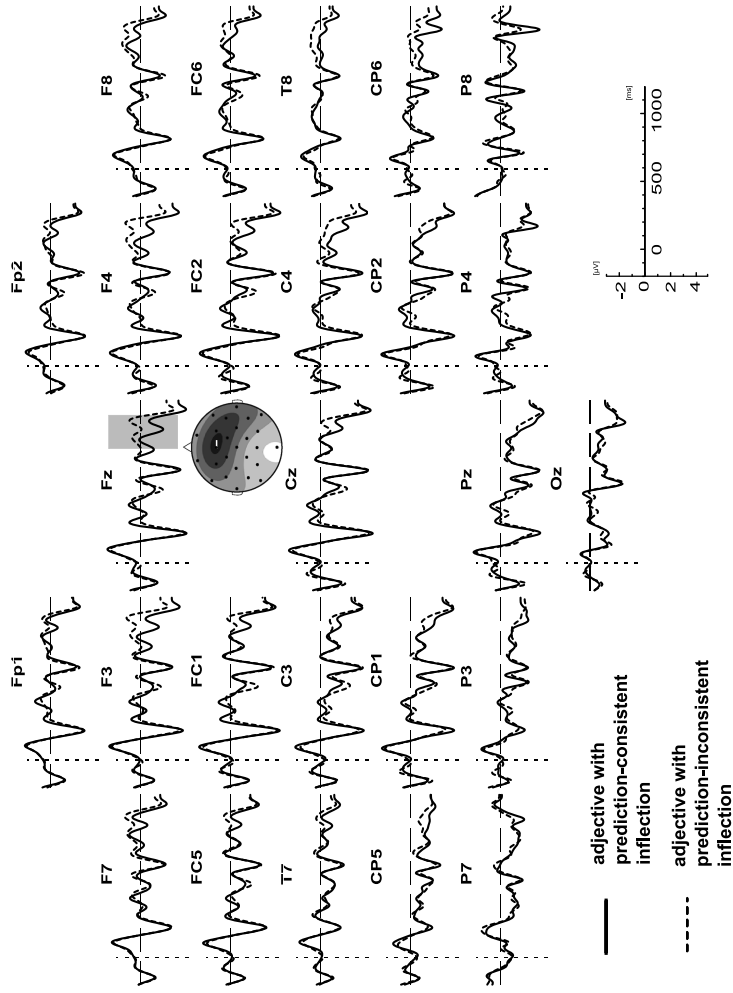 Fp1 Fp2
F7 F3 Fz F4 F8
FC5 FC1 FC2 FC6
T7 C3 Cz C4 T8
CP5 CP1 CP2 CP6
P7 P3 Pz P4 P8
Oz
adjective with
prediction-consistent
inflection
adjective with
prediction-inconsistent
inflection
[µV]
-2
0
2
4
0 500 1000
[ms]